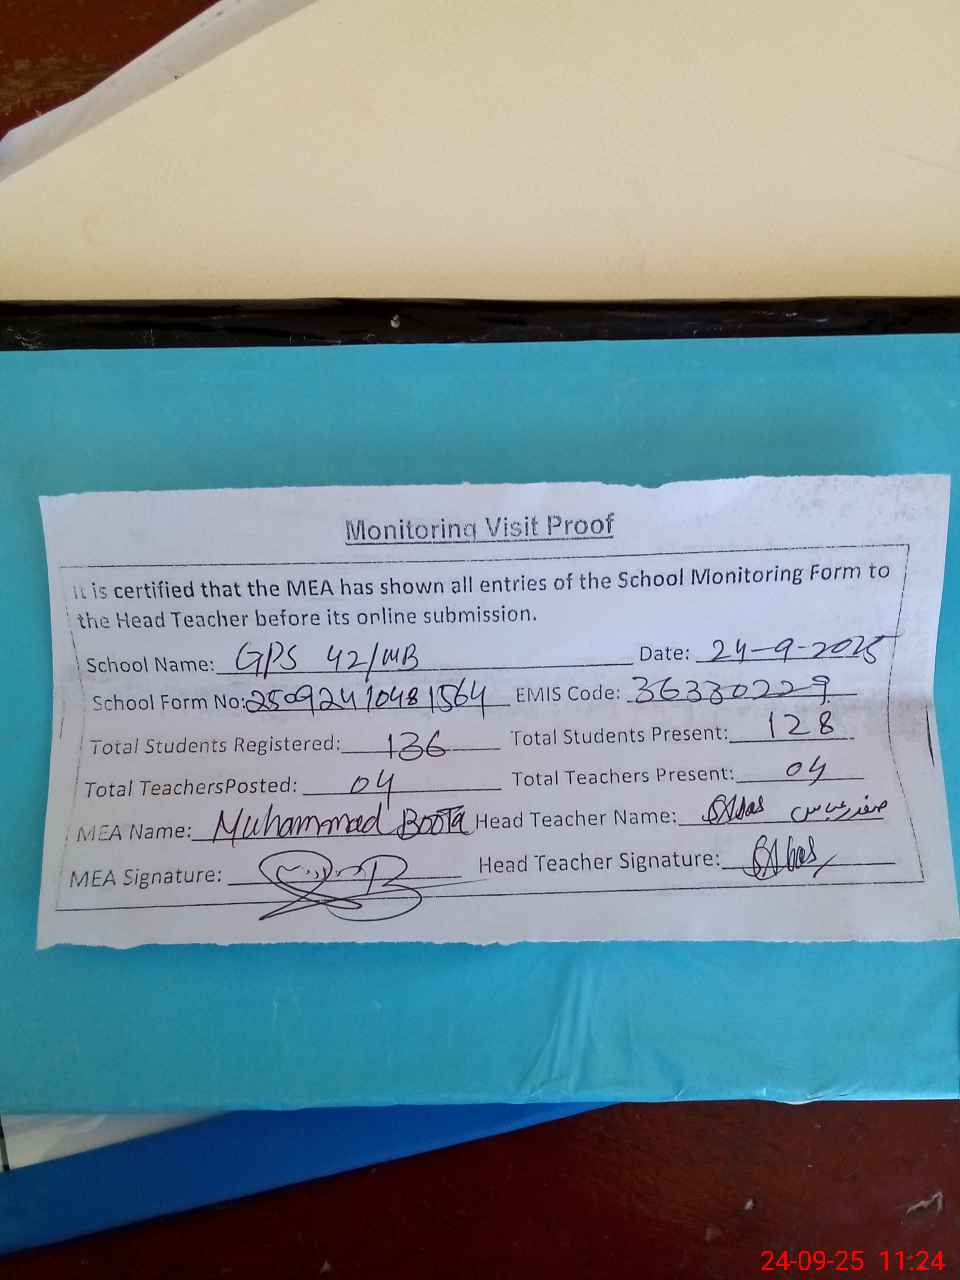 Monitoring Visit Proof
It is certified that the MEA has shown all entries of the School Monitoring Form to
the Head Teacher before its online submission.
School Name: GPS 42/MB Date: 24-9-2025
School Form No: 25092410481564 EMIS Code: 36330229
Total Students Registered: 136 Total Students Present: 128
Total TeachersPosted: 04 Total Teachers Present: 04
MEA Name: Muhammad Boota Head Teacher Name:
MEA Signature: Head Teacher Signature:
24-09-25 11:24